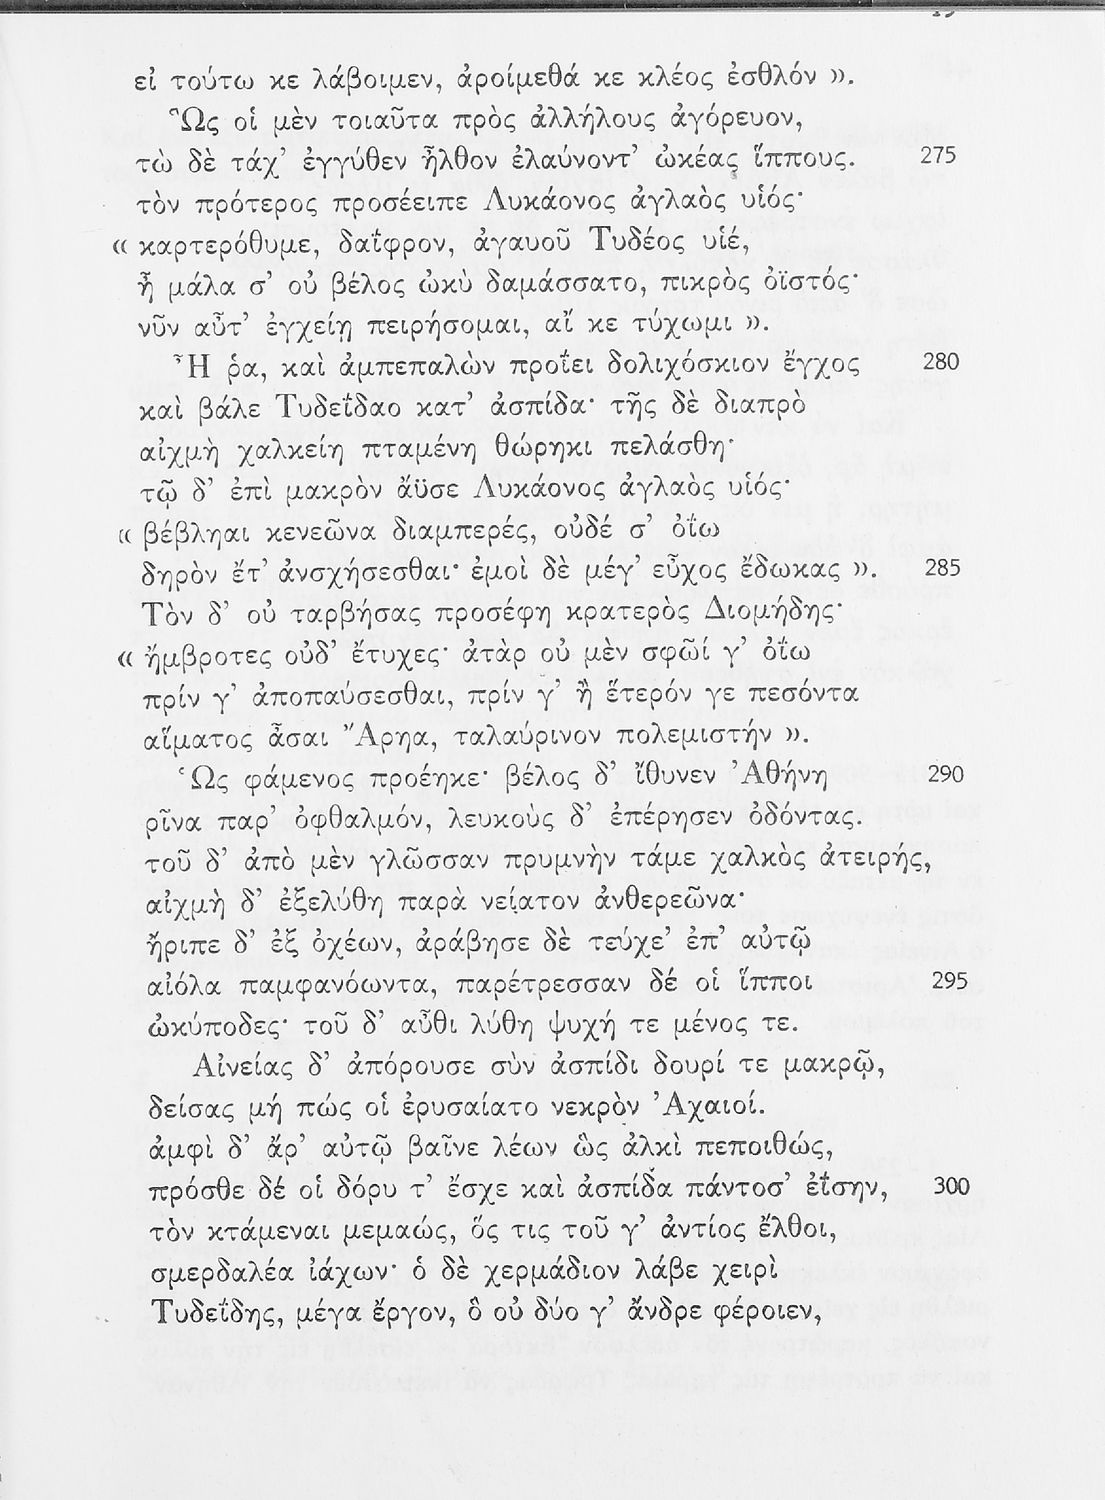 εἰ τούτω κε λάβοιμεν, ἀροίμεθά κε κλέος ἐσθλόν ».
Ὣς οἱ μὲν τοιαῦτα πρὸς ἀλλήλους ἀγόρευον,
τὼ δὲ τάχ’ ἐγγύθεν ἦλθον ἐλαύνοντ’ ὠκέας ἵππους. 275
τὸν πρότερος προσέειπε Λυκάονος ἀγλαὸς υἱός·
« καρτερόθυμε, δαΐφρον, ἀγαυοῦ Τυδέος υἱέ,
ἦ μάλα σ’ οὐ βέλος ὠκὺ δαμάσσατο, πικρὸς ὀϊστός·
νῦν αὖτ’ ἐγχείῃ πειρήσομαι, αἴ κε τύχωμι ».
Ἦ ῥα, καὶ ἀμπεπαλὼν προΐει δολιχόσκιον ἔγχος 280
καὶ βάλε Τυδεΐδαο κατ’ ἀσπίδα· τῆς δὲ διαπρὸ
αἰχμὴ χαλκείη πταμένη θώρηκι πελάσθη·
τῷ δ’ ἐπὶ μακρὸν ἄϋσε Λυκάονος ἀγλαὸς υἱός·
« βέβληαι κενεῶνα διαμπερές, οὐδέ σ’ ὀΐω
δηρὸν ἔτ’ ἀνσχήσεσθαι· ἐμοὶ δὲ μέγ’ εὖχος ἔδωκας ». 285
Τὸν δ’ οὐ ταρβήσας προσέφη κρατερὸς Διομήδης·
« ἤμβροτες οὐδ’ ἔτυχες· ἀτὰρ οὐ μὲν σφῶΐ γ’ ὀΐω
πρίν γ’ ἀποπαύσεσθαι, πρίν γ’ ἢ ἕτερόν γε πεσόντα
αἵματος ἆσαι Ἄρηα, ταλαύρινον πολεμιστήν ».
Ὣς φάμενος προέηκε· βέλος δ’ ἴθυνεν Ἀθήνη 290
ῥῖνα παρ’ ὀφθαλμόν, λευκοὺς δ’ ἐπέρησεν ὀδόντας.
τοῦ δ’ ἀπὸ μὲν γλῶσσαν πρυμνὴν τάμε χαλκὸς ἀτειρής,
αἰχμὴ δ’ ἐξελύθη παρὰ νείατον ἀνθερεῶνα·
ἤριπε δ’ ἐξ ὀχέων, ἀράβησε δὲ τεύχε’ ἐπ’ αὐτῷ
αἰόλα παμφανόωντα, παρέτρεσσαν δέ οἱ ἵπποι 295
ὠκύποδες· τοῦ δ’ αὖθι λύθη ψυχή τε μένος τε.
Αἰνείας δ’ ἀπόρουσε σὺν ἀσπίδι δουρί τε μακρῷ,
δείσας μή πώς οἱ ἐρυσαίατο νεκρὸν Ἀχαιοί.
ἀμφὶ δ’ ἄρ’ αὐτῷ βαῖνε λέων ὣς ἀλκὶ πεποιθώς,
πρόσθε δέ οἱ δόρυ τ’ ἔσχε καὶ ἀσπίδα πάντοσ’ ἐΐσην, 300
τὸν κτάμεναι μεμαώς, ὅς τις τοῦ γ’ ἀντίος ἔλθοι,
σμερδαλέα ἰάχων· ὁ δὲ χερμάδιον λάβε χειρὶ
Τυδεΐδης, μέγα ἔργον, ὃ οὐ δύο γ’ ἄνδρε φέροιεν,